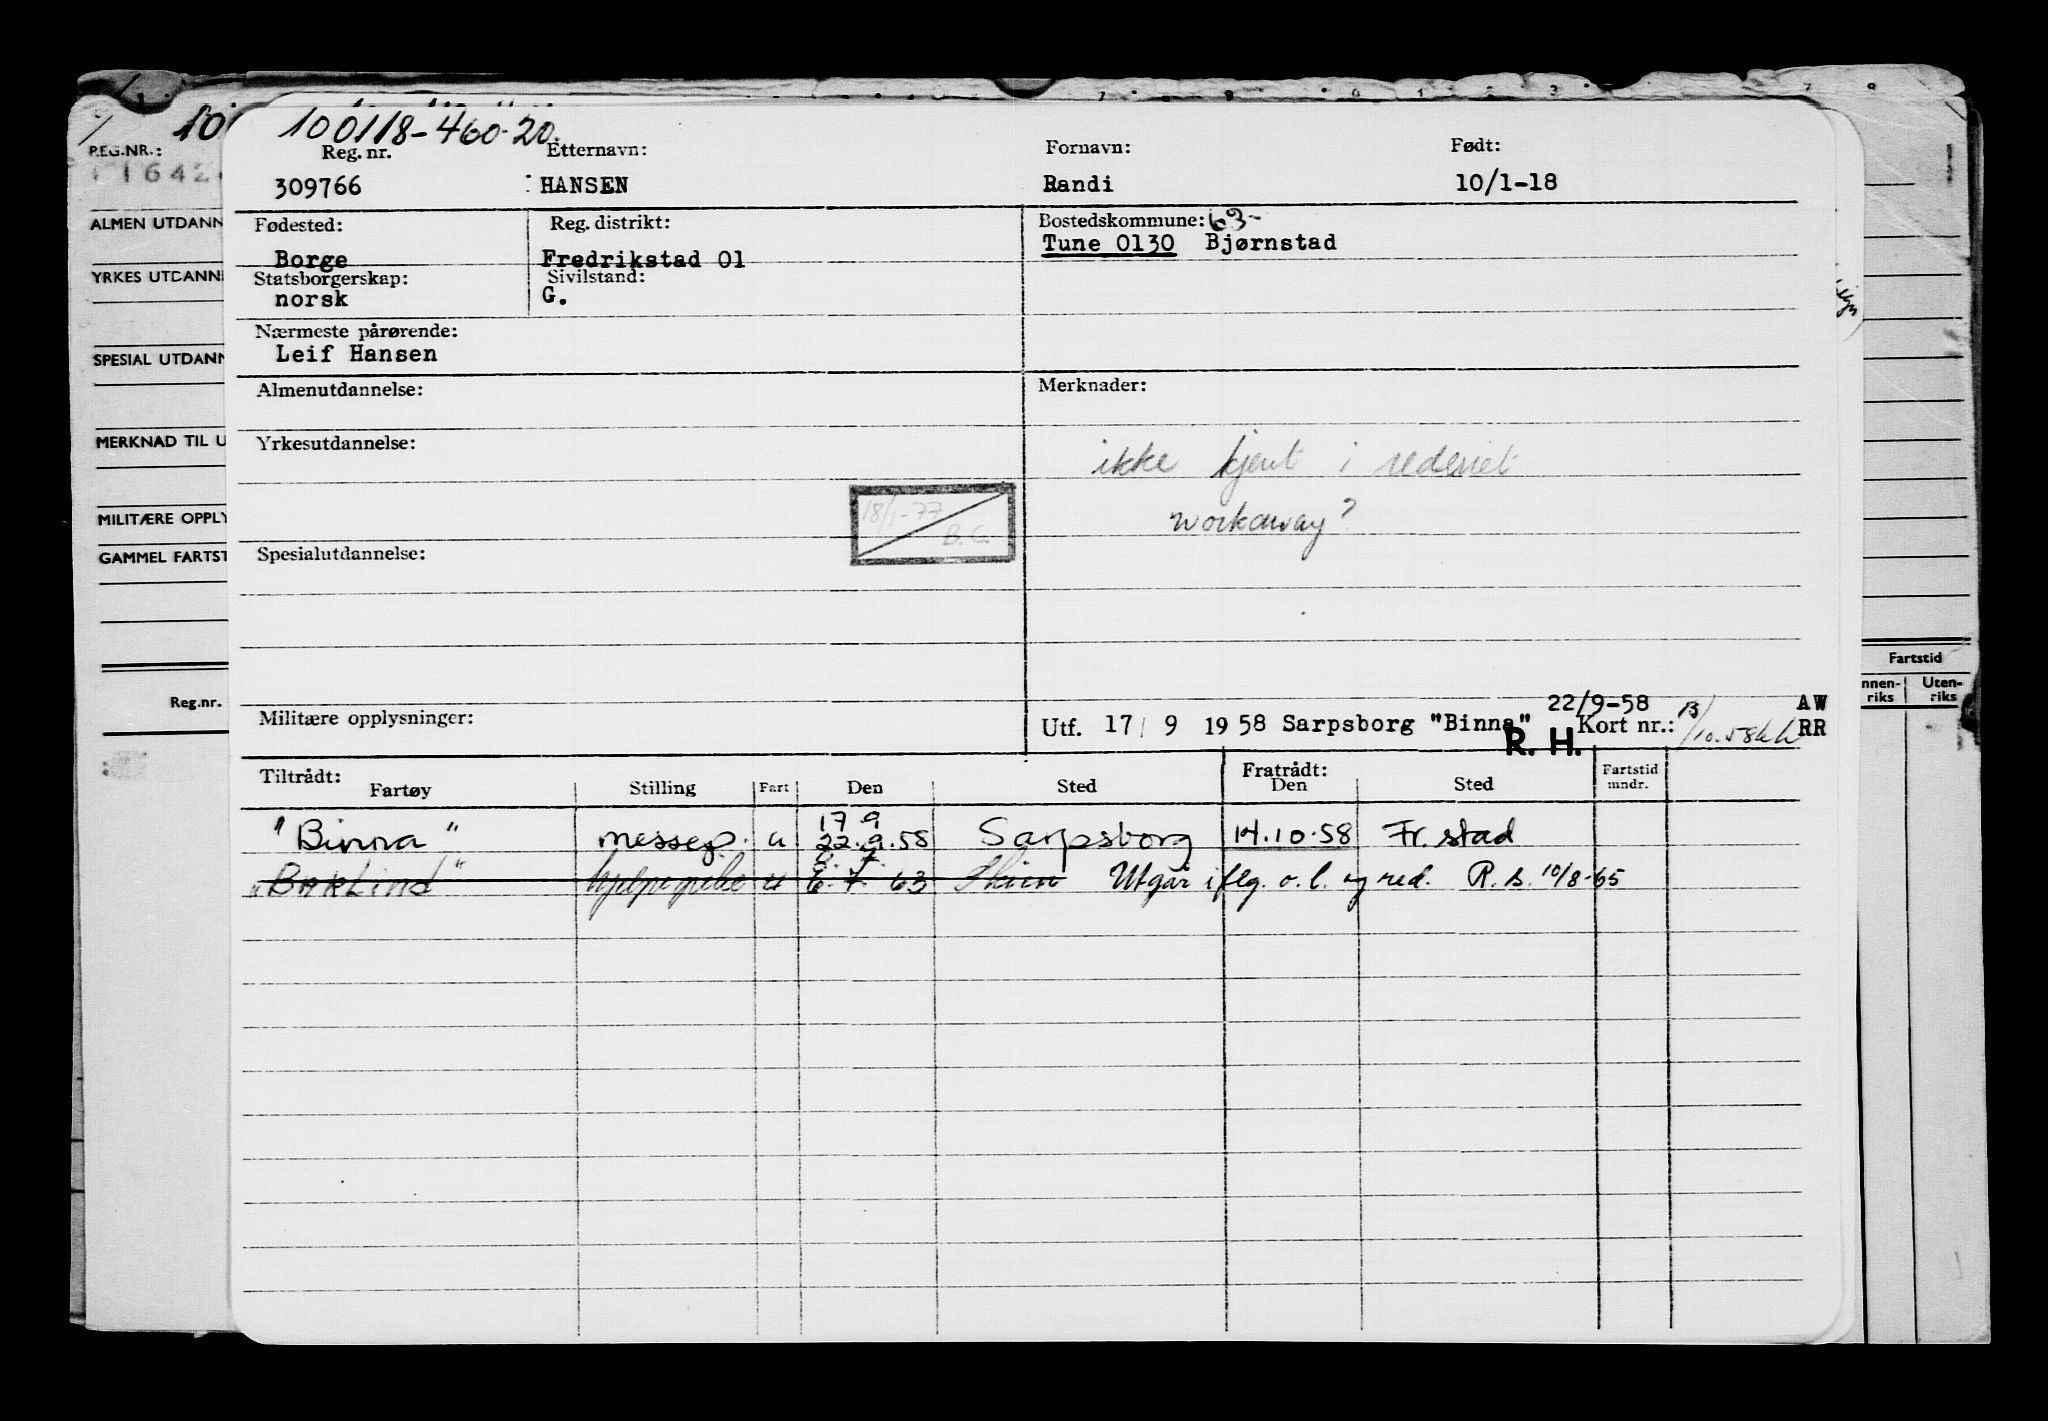 100118-460-20.
Reg. nr. Etternavn: Fornavn: Født:
309766 HANSEN Randi 10/1-18
Fødested: Reg. distrikt: Bostedskommune: 63-
Borge Fredrikstad 01 Tune 0130 Bjørnstad
Statsborgerskap: Sivilstand:
norsk G.
Nærmeste pårørende:
Leif Hansen
Almenutdannelse: Merknader:
Yrkesutdannelse:
ikke kjent i rederiet
workaway?
18/1-77
B.C.
Spesialutdannelse:
22/9-58 AW
Militære opplysninger: Utf. 17/ 9 1958 Sarpsborg "Binna" Kort nr.: RR
R. H.
Tiltrådt: Fratrådt:
Fartøy Stilling Fart Den Sted Den Sted Fartstid mndr.
17.9
"Binna" messep. u 22.9.58 Sarpsborg 14.10.58 Fr.stad
"Baklind" u 6.7.63 Utgår iflg. o.l. og red. R.S. 10/8-65
REG.NR.:
ALMEN UTDANN
YRKES UTDANN
SPESIAL UTDANN
MERKNAD TIL U
MILITÆRE OPPLY
GAMMEL FARTST
Reg.nr.
Fartstid
nnen-riks Uten-riks